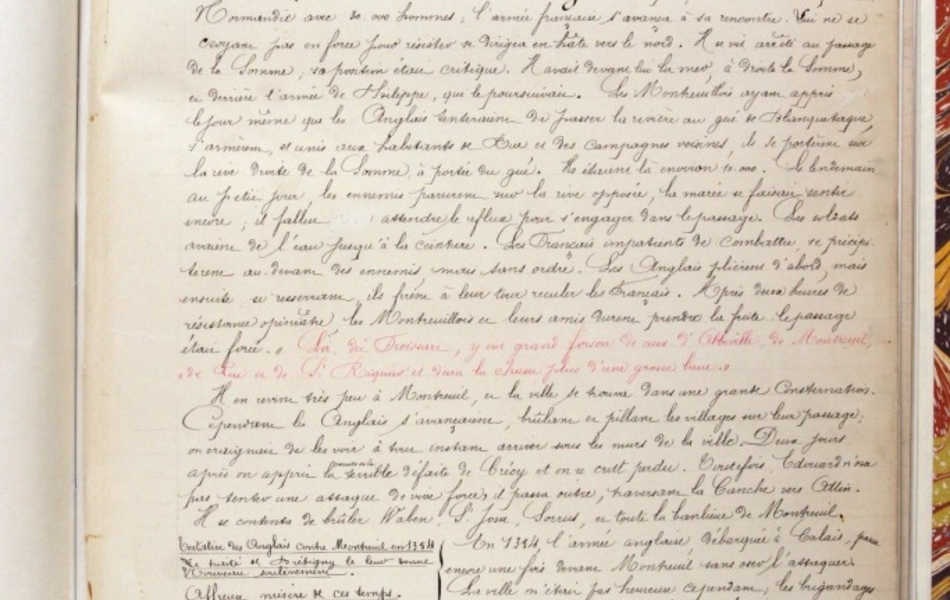 Normandie avec 30.000 hommes, l'armée française s'avança à sa rencontre. Lui ne se
croyant pas en force pour résister se dirigea en hâte vers le nord. Il se vit arrêté au passage
de la Somme, sa position était critique. Il avait devant lui la mer, à droite la Somme,
et derrière l'armée de Philippe, qui le poursuivait. Les Montreuillois ayant appris
le jour même que les Anglais tenteraient de passer la rivière au gué de Blanquetaque
s'armèrent, et unis aux habitants de Rue et des campagnes voisines, ils se portèrent sur
la rive droite de la Somme, à portée du gué. Ils étaient là environ 10.000. Le lendemain
au petit jour, les ennemis parurent sur la rive opposée, la marée se faisait sentir
encore, il fallut attendre le reflux pour s'engager dans le passage. Les soldats
avaient de l'eau jusqu'à la ceinture. Les Français impatients de combattre, se précipi-
tèrent au devant des ennemis mais sans ordre. Les Anglais plièrent d'abord, mais
ensuite se resserrant, ils firent à leur tour reculer les Français. Après deux heures de
résistance opiniâtre, les Montreuillois et leurs amis durent prendre la fuite le passage
était forcé. « Là, dit Froissart, y eut grand foison de ceux d'Abbeville, de Montreuil,
« de Rue et de St Riquier et dura la chasse plus d'une grosse lieue. »
Il en revint très peu à Montreuil, et la ville se trouva dans une grande Consternation.
Cependant les Anglais s'avançaient, brûlant et pillant les villages sur leur passage;
on craignait de les voir à tout instant arriver sous les murs de la ville. Deux jours
après on apprit la terrible défaite de Crécy et on se crut perdu. Toutefois, Edouard n'osa
pas tenter une attaque de vive force, il passa outre, traversant la Canche vers Attin.
Il se contenta de brûler Waben, St Josse, Sorrus, et toute la banlieue de Montreuil.
Tentative des Anglais contre Montreuil en 1354
Le traité de Brétigny le leur donne
Nouveau soulèvement.
Affreuse misère de ces temps.
En 1354 l'armée anglaise débarquée à Calais, passa
encore une fois devant Montreuil sans oser l'attaquer.
La ville n'était pas heureuse cependant, les brigandages